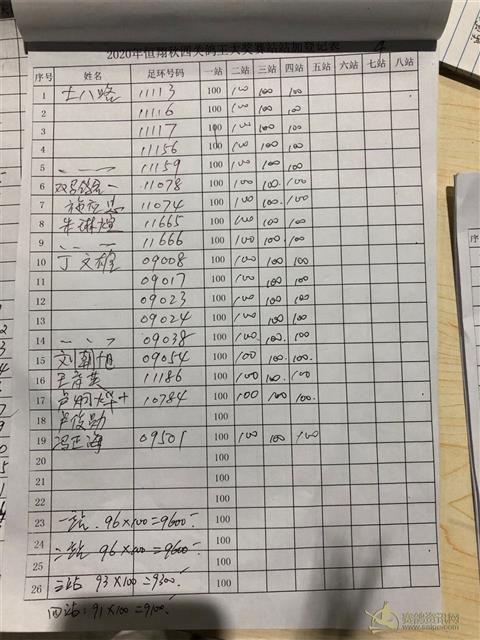 2020年恒翔秋四关鸽王大奖赛站站加登记表
序号 姓名 足环号码 一站 二站 三站 四站 五站 六站 七站 八站
1 十八路 11113 100 100 100 100
2 11116 100 100 100 100
3 11117 100 100 100 100
4 11156 100 100 100 100
5 11159 100 100 100 100
6 11078 100 100 100 100
7 11074 100 100 100 100
8 朱琳煊 11665 100 100 100 100
9 11666 100 100 100 100
10 丁文雄 09008 100 100 100 100
11 09017 100 100 100 100
12 09023 100 100 100 100
13 09024 100 100 100 100
14 09038 100 100 100 100
15 刘朝旭 09054 100 100 100 100
16 11186 100 100 100 100
17 10784 100 100 100 100
18 卢俊勋 100
19 冯正海 09501 100 100 100 100
20 100
21 100
22 100
23 一站. 96×100=9600 100
24 二站 96×100=9600 100
25 100
26 三站 93×100=9300 100
四站: 91×100=9100
赛鸽资讯网
www.saige.com